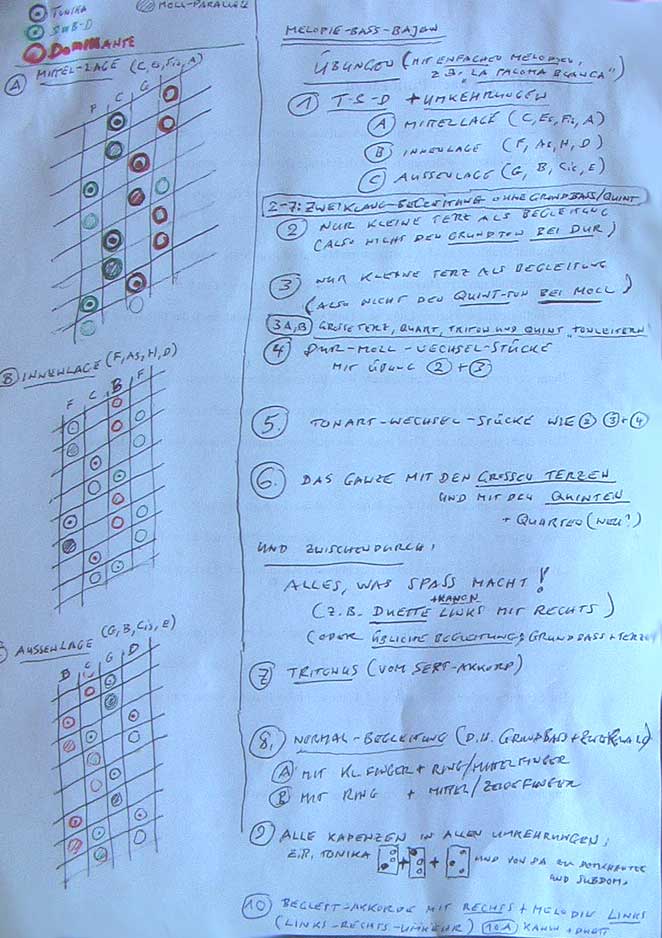 TONIKA
SUB-D
DOMINANTE
MOLL-PARALLELE
A MITTEL-LAGE (C, Es, Fis, A)
F C G
B INNENLAGE (F, As, H, D)
F C B F
AUSSENLAGE (G, B, Cis, E)
D C G D
MELODIE-BASS-BAJAN
ÜBUNGEN (MIT EINFACHEN MELODIEN,
Z.B. "LA PALOMA BLANCA")
1 T-S-D + UMKEHRUNGEN
A MITTELLAGE (C, Es, Fis, A)
B INNENLAGE (F, As, H, D)
C AUSSENLAGE (G, B, Cis, E)
2-7: ZWEIKLANG-BEGLEITUNG OHNE GRUNDBASS/QUINT
2 NUR KLEINE TERZ ALS BEGLEITUNG
(ALSO NICHT DEN GRUNDTON BEI DUR)
3 NUR KLEINE TERZ ALS BEGLEITUNG
(ALSO NICHT DEN QUINT-TON BEI MOLL)
3A,B GROSSE TERZ, QUART, TRITON UND QUINT "TONLEITERN"
4 DUR-MOLL-WECHSEL-STÜCKE
MIT ÜBUNG 2 + 3
5. TONART-WECHSEL-STÜCKE WIE 2 3 + 4
6. DAS GANZE MIT DEN GROSSEN TERZEN
UND MIT DEN QUINTEN
+ QUARTEN (NEU!)
UND ZWISCHENDURCH:
ALLES, WAS SPASS MACHT!
+KANON
(Z.B. DUETTE LINKS MIT RECHTS)
(ODER ÜBLICHE BEGLEITUNG, GRUNDBASS + TERZ
7 TRITONUS (VOM SEPT-AKKORD)
8. NORMAL-BEGLEITUNG (D.H. GRUNDBASS + ZWEIKLANG)
A MIT KL. FINGER + RING/MITTELFINGER
B MIT RING + MITTEL/ZEIGEFINGER
9 ALLE KADENZEN IN ALLEN UMKEHRUNGEN,
Z.B. TONIKA + + UND VON DA ZU DOMINANTE
UND SUBDOM.
10 BEGLEIT-AKKORDE MIT RECHTS + MELODIE LINKS
(LINKS-RECHTS-UMKEHR) 10A KANON + DUETT